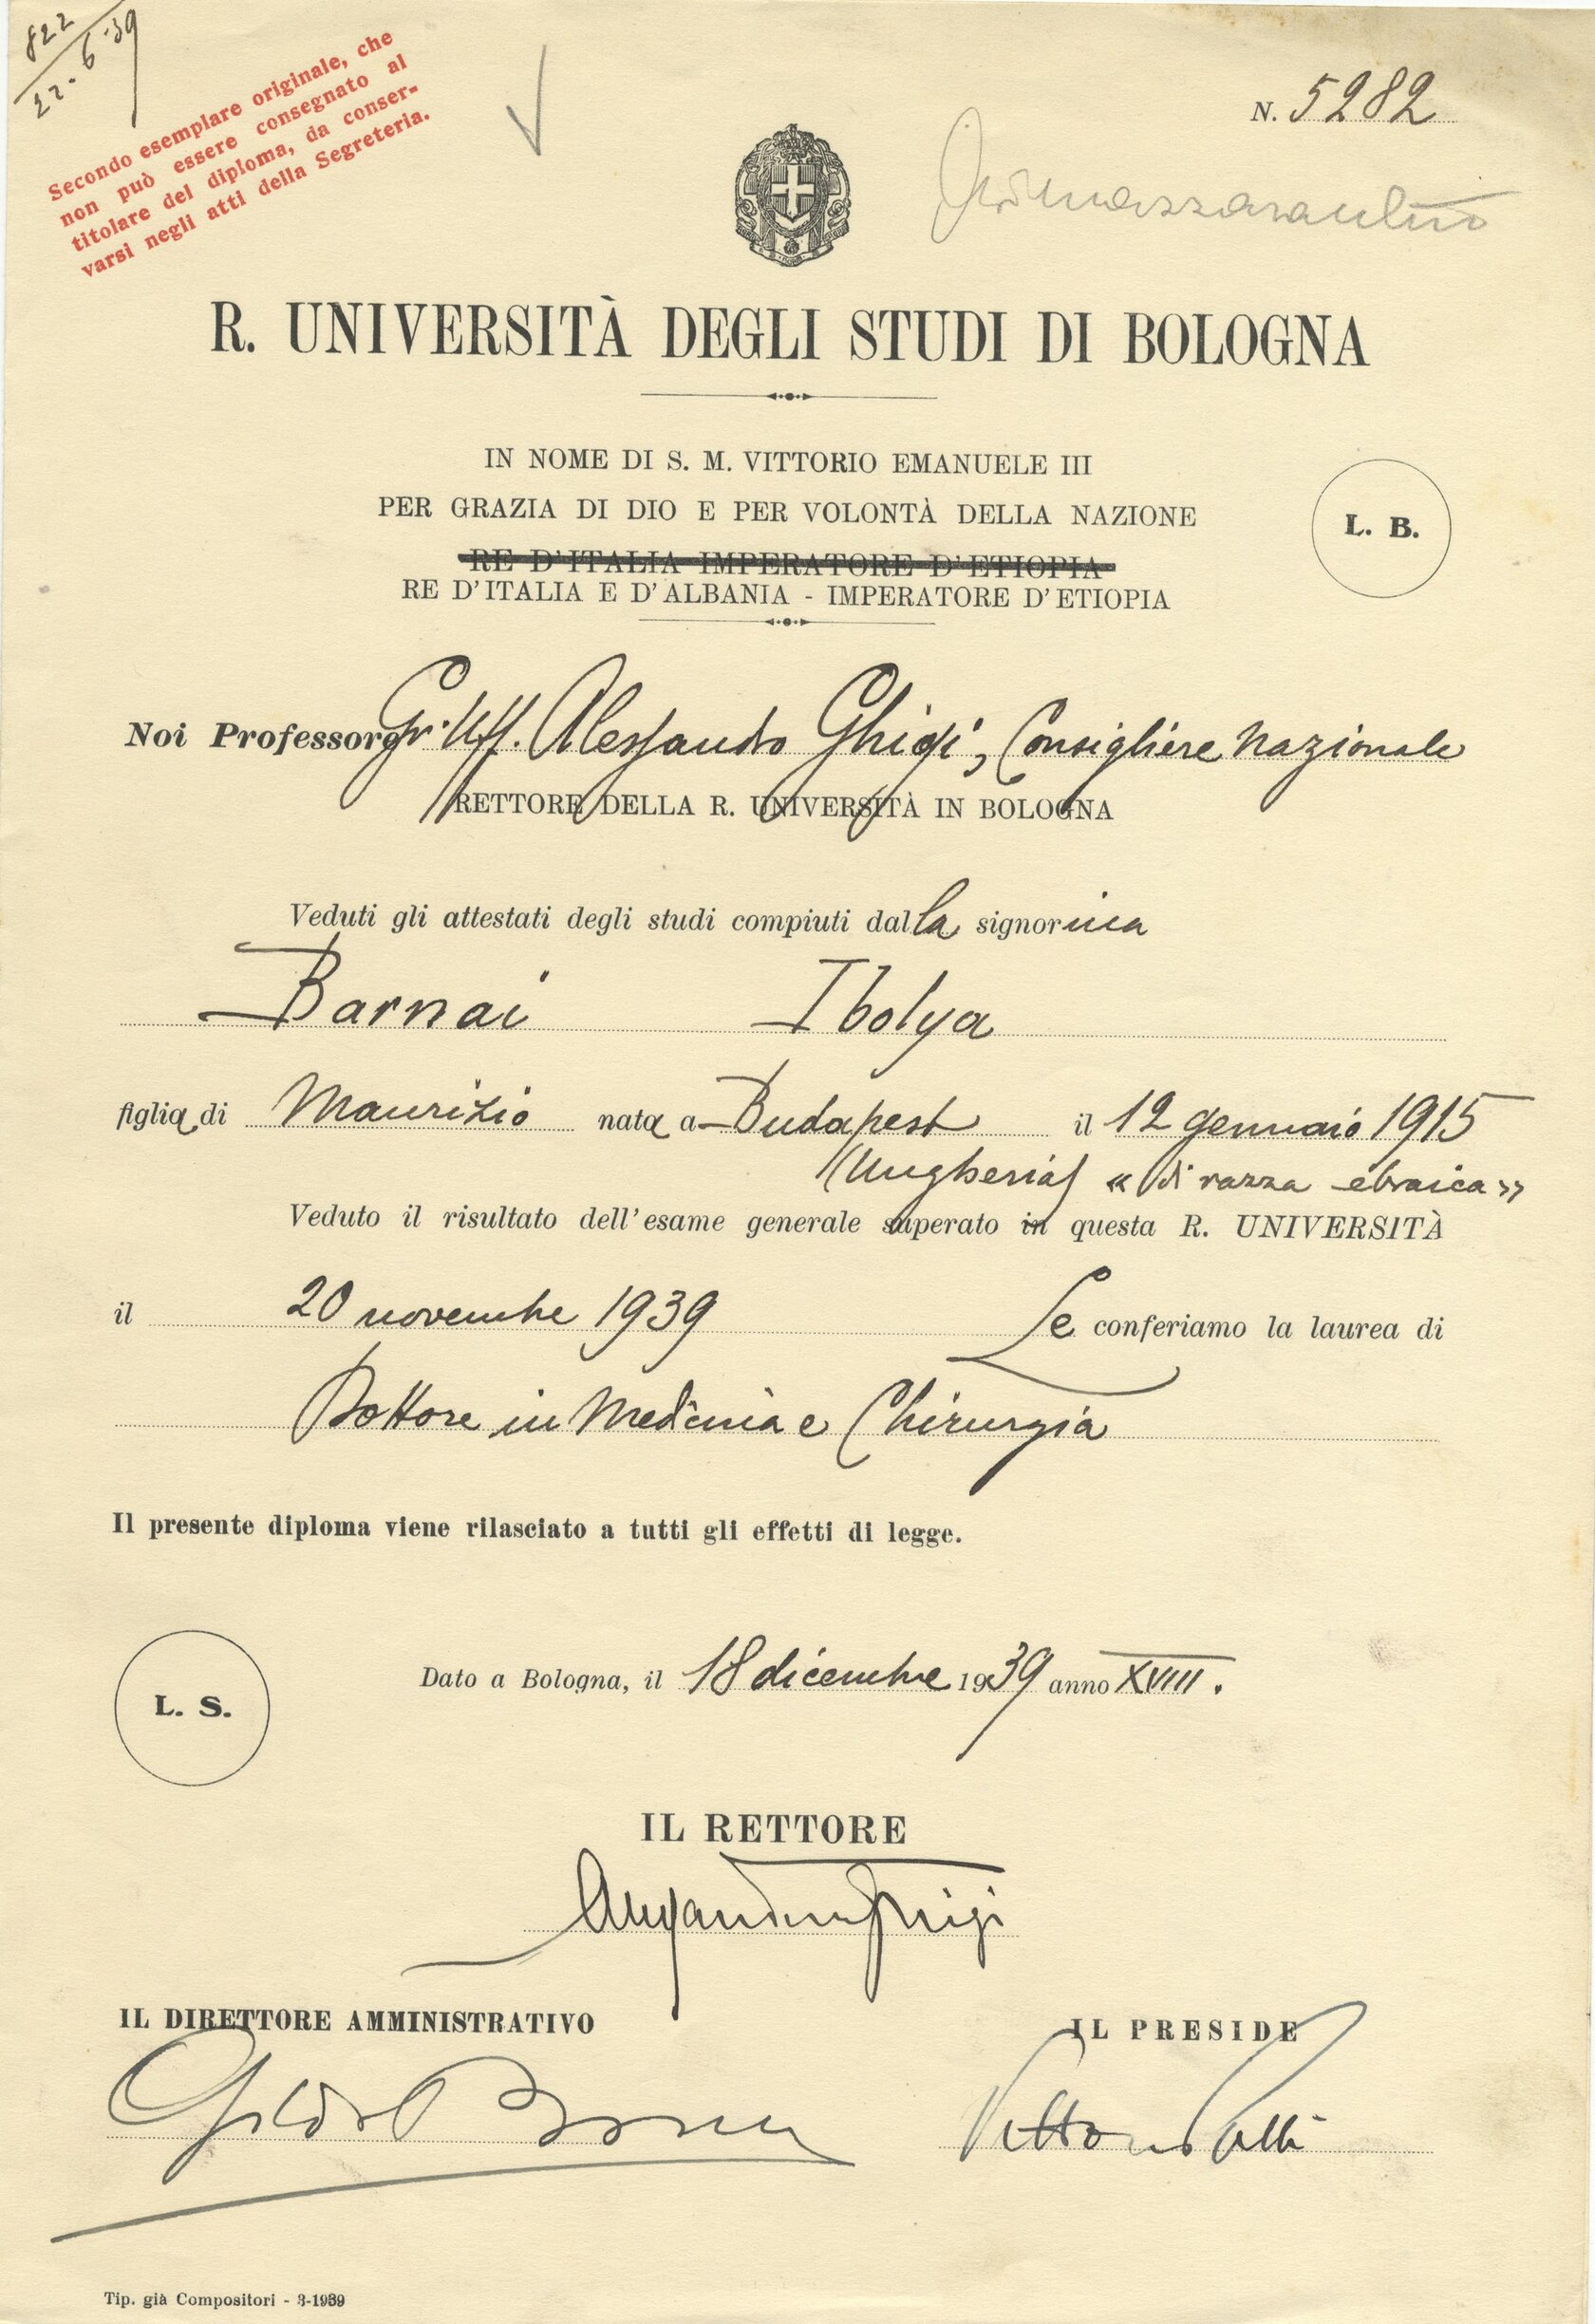 822
22-6-39
Secondo esemplare originale, che
non può essere consegnato al
titolare del diploma, da conser-
varsi negli atti della Segreteria.
N. 5282
R. UNIVERSITÀ DEGLI STUDI DI BOLOGNA
IN NOME DI S. M. VITTORIO EMANUELE III
PER GRAZIA DI DIO E PER VOLONTÀ DELLA NAZIONE
RE D'ITALIA IMPERATORE D'ETIOPIA
RE D'ITALIA E D'ALBANIA - IMPERATORE D'ETIOPIA
L. B.
Noi Professore Gr. Uff. Alessandro Ghigi, Consigliere Nazionale
RETTORE DELLA R. UNIVERSITÀ IN BOLOGNA
Veduti gli attestati degli studi compiuti dalla signorina
Barnai Ibolya
figlia di Maurizio nata a Budapest il 12 gennaio 1915
(Ungheria) « di razza ebraica »
Veduto il risultato dell'esame generale superato in questa R. UNIVERSITÀ
il 20 novembre 1939 Le conferiamo la laurea di
Dottore in Medicina e Chirurgia
Il presente diploma viene rilasciato a tutti gli effetti di legge.
L. S.
Dato a Bologna, il 18 dicembre 1939 anno XVIII.
IL RETTORE
Alessandro Ghigi
IL DIRETTORE AMMINISTRATIVO
IL PRESIDE
Vittorio Putti
Tip. già Compositori - 3-1939